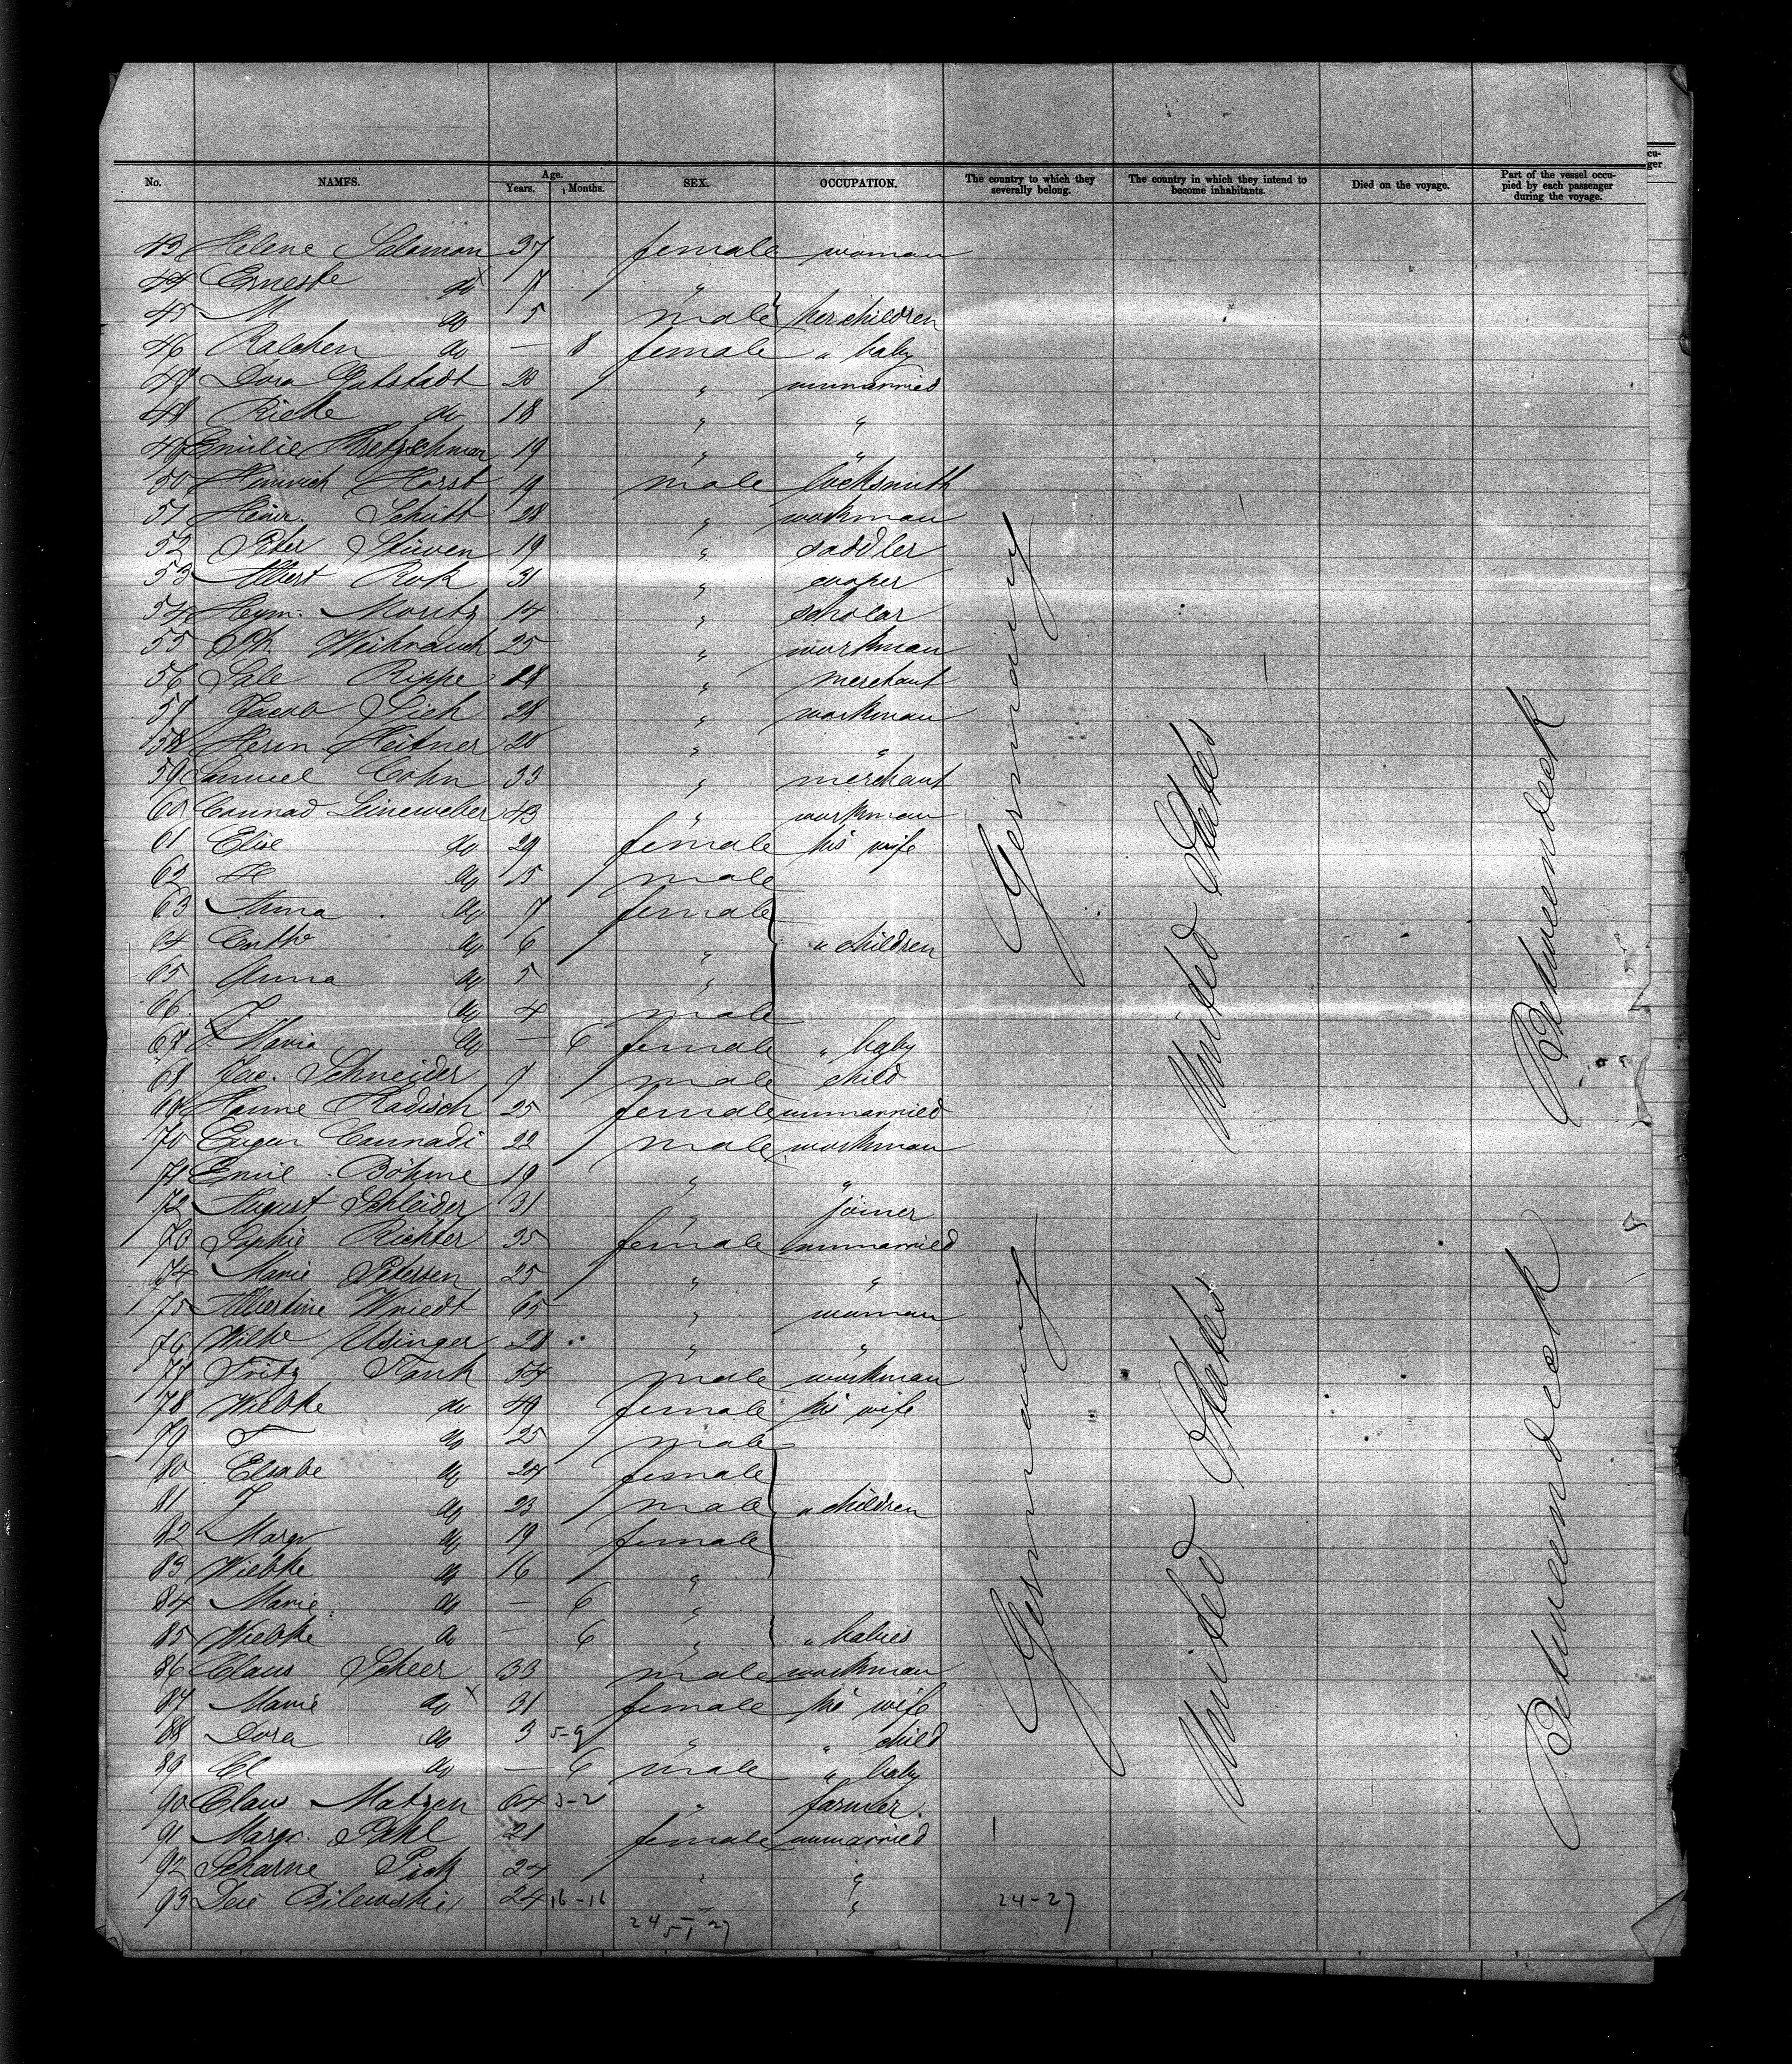 No. NAMES. Age. Years. Months. SEX. OCCUPATION. The country to which they severally belong. The country in which they intend to become inhabitants. Died on the voyage. Part of the vessel occupied by each passenger during the voyage.
43 Helene Salomon 37 female woman
44 Erneste do 7 "
45 M do 5 male her children
46 Ralchen do — 8 female " baby
47 Dora Gutstadt 20 " unmarried
48 Rieke do 18 " "
49 Emilie Kretzschmar 19 " "
50 Heinrich Horst 19 male locksmith
51 Heinr. Schütt 28 " workman
52 Peter Stüven 19 " saddler
53 Albert Rok 31 " cooper
54 Hym. Moritz 14 " scholar
55 Weihrauch 25 " workman
56 Sale Rippe 28 " merchant
57 Jacob Sich 28 " workman
58 Herm Heitner 20 " "
59 Samuel Cohn 33 " merchant
60 Connad Leineweber 43 " workman
61 Elise do 29 female his wife
62 H do 15 male
63 Anna do 7 female
64 do 6 " " children
65 Anna do 5 "
66 J do 4 male
67 Maria do — 6 female " baby
68 Jac. Schneider 7 male child
69 Hanne Radisch 25 female unmarried
70 Eugen Connadi 22 male workman
71 Emil Böhme 19 " "
72 August Schleider 31 " joiner
73 Sophie Richter 35 female unmarried
74 Marie Petersen 25 " "
75 Albertine Wriedt 65 " woman
76 Wilke Usinger 28 " "
77 Fritz Tank 54 male workman
78 Wiebke do 49 female his wife
79 T do 25 male
80 Elsabe do 24 female
81 J do 23 male " children
82 Margr do 19 female
83 Wiebke do 16 "
84 Marie do — 6 "
85 Wiebke do — 6 " " babies
86 Claus Scheer 33 male workman
87 Marie do x 31 female his wife
88 Dora do 3 5-9 " " child
89 Cl do — 6 male " baby
90 Claus Matzen 64 5-2 " farmer.
91 Margr. Pahl 21 female unmarried
92 Scharne Pick 24 " "
93 Bilewski 24 16-16 " " 24-27
24 51 27
Germany
United States
Betweendeck
Germany
United States
Betweendeck